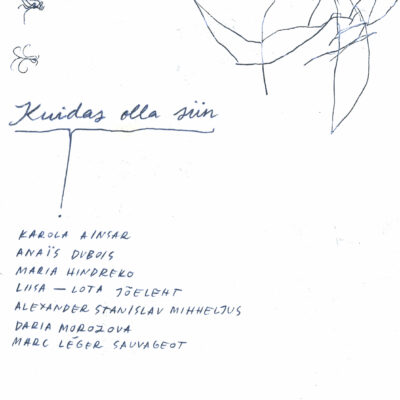 Kuidas olla siin
KAROLA AINSAR
ANAÏS DUBOIS
MARIA HINDREKO
LIISA — LOTA JÕELEHT
ALEXANDER STANISLAV MIHHELJUS
DARIA MOROZOVA
MARC LÉGER SAUVAGEOT